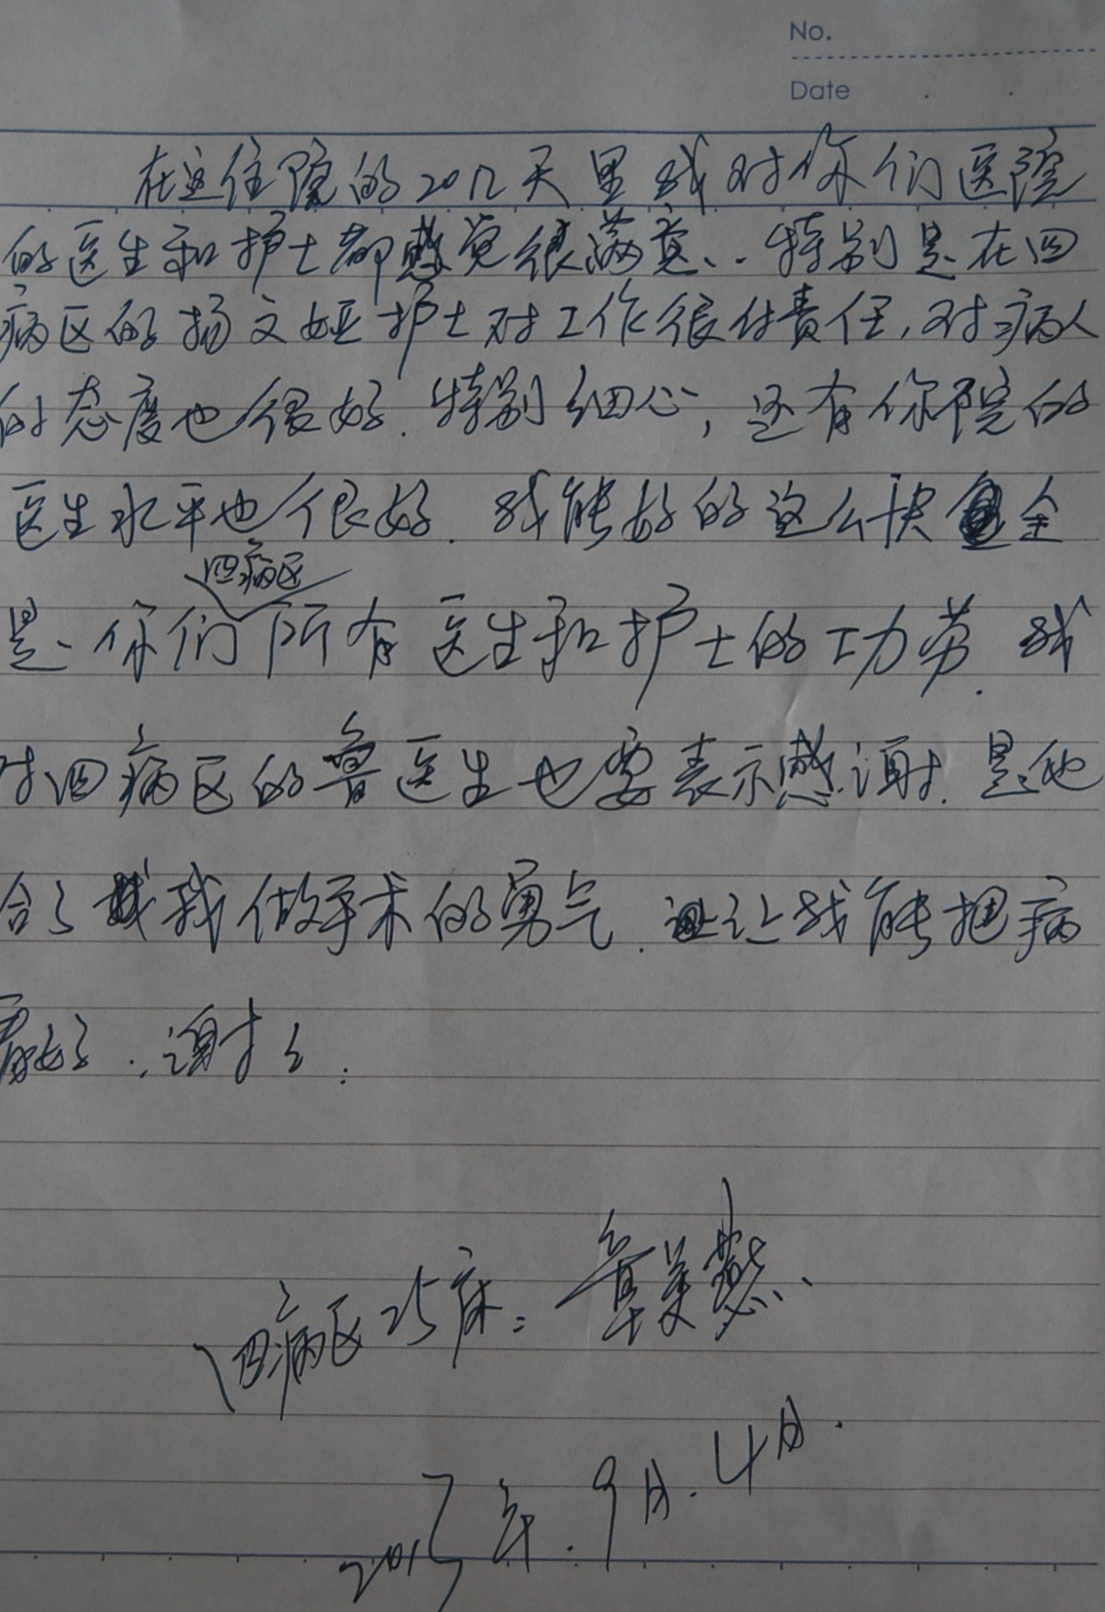 No.
Date
在这住院的20几天里我对你们医院
的医生和护士都感觉很满意.. 特别是在四
病区的扬文娅护士对工作很付责任,对病人
的态度也很好.特别细心,还有你院的
医生水平也很好.我能好的这么快全
四病区
是你们所有医生和护士的功劳.我
对四病区的鲁医生也要表示感谢.是他
给了我做手术的勇气.让我能把病
看好.谢谢.
四病区25床:章美
年.9月.4日.